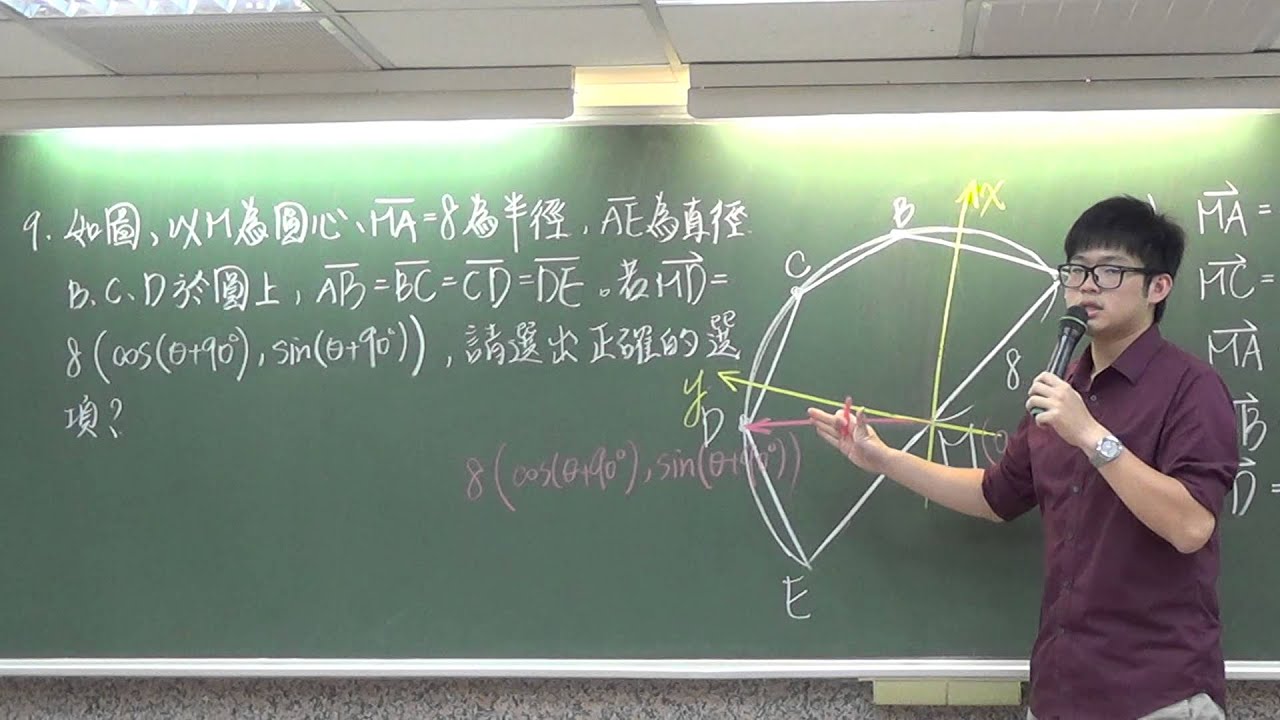 9. 如圖、以M為圓心、MA=8為半徑,AE為直徑
B、C、D於圓上,AB=BC=CD=DE。若MD=
8(cos(θ+90°),sin(θ+90°)),請選出正確的選
項?
x
B
C
8
y
D
M
8(cos(θ+90°),sin(θ+90°))
E
MA=
MC=
MA
B
D=